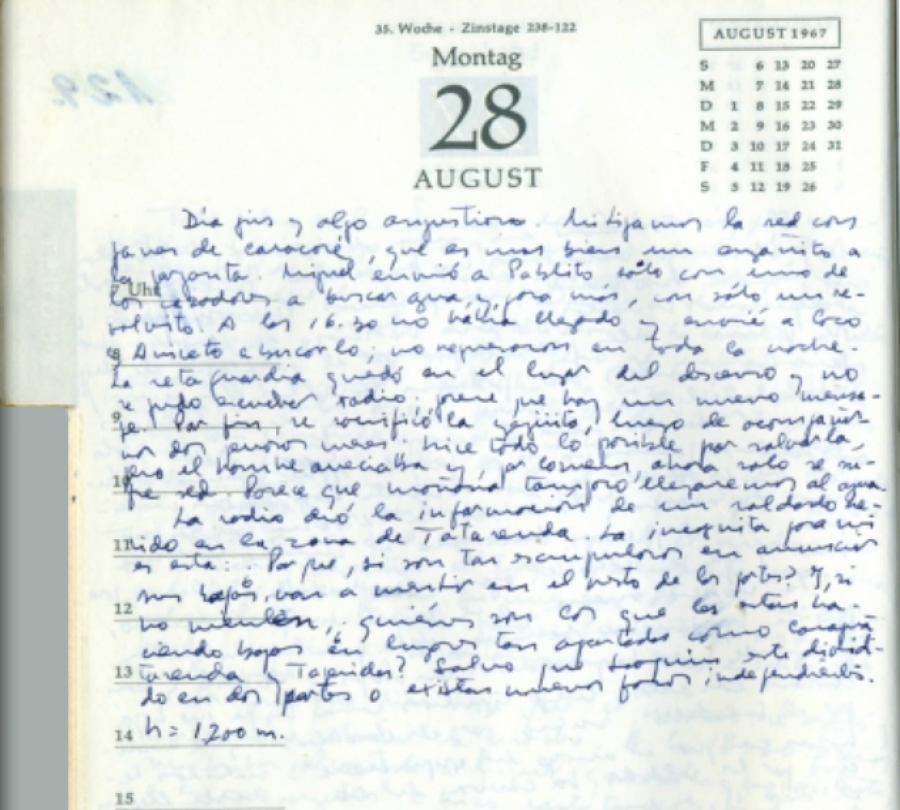 35. Woche - Zinstage 238-122
Montag
28
AUGUST
AUGUST 1967
S 6 13 20 27
M 7 14 21 28
D 1 8 15 22 29
M 2 9 16 23 30
D 3 10 17 24 31
F 4 11 18 25
S 5 12 19 26
Día gris y algo angustioso. Mitigamos la sed con
gajos de caracoré, que es mas bien un engañito a
la garganta. Miguel envió a Pablito sólo con uno de
7 Uhr
los cazadores a buscar agua, y, para más, con sólo un re-
volvito. A las 16.30 no había llegado y envié a Coco
8
y Aniceto a buscarlo; no regresaron en toda la noche.
La retaguardia quedó en el lugar del descenso y no
se pudo escuchar radio; parece que hay un nuevo mensa-
9
je. Por fin, se sacrificó la yegüita, luego de acompañar-
nos dos penosos meses. hice todo lo posible por salvarla,
pero el hambre arreciaba y, por lo menos, ahora solo se su-
10
fre sed. Parece que mañana tampoco llegaremos al agua.
La radio dió la información de un soldado he-
11
rido en la zona de Tatarenda. La incognita para mi
es esta: Por qué, si son tan escrupulosos en anunciar
sus bajas, van a mentir en el resto de los partes? Y, si
12
no mienten, quiénes son los que les estan ha-
ciendo bajas en lugares tan apartados como Caragua-
13
tarenda y Taperillas? Salvo que Joaquin este dividi-
do en dos partes o existan nuevos focos independientes.
14
h = 1,200 m.
15